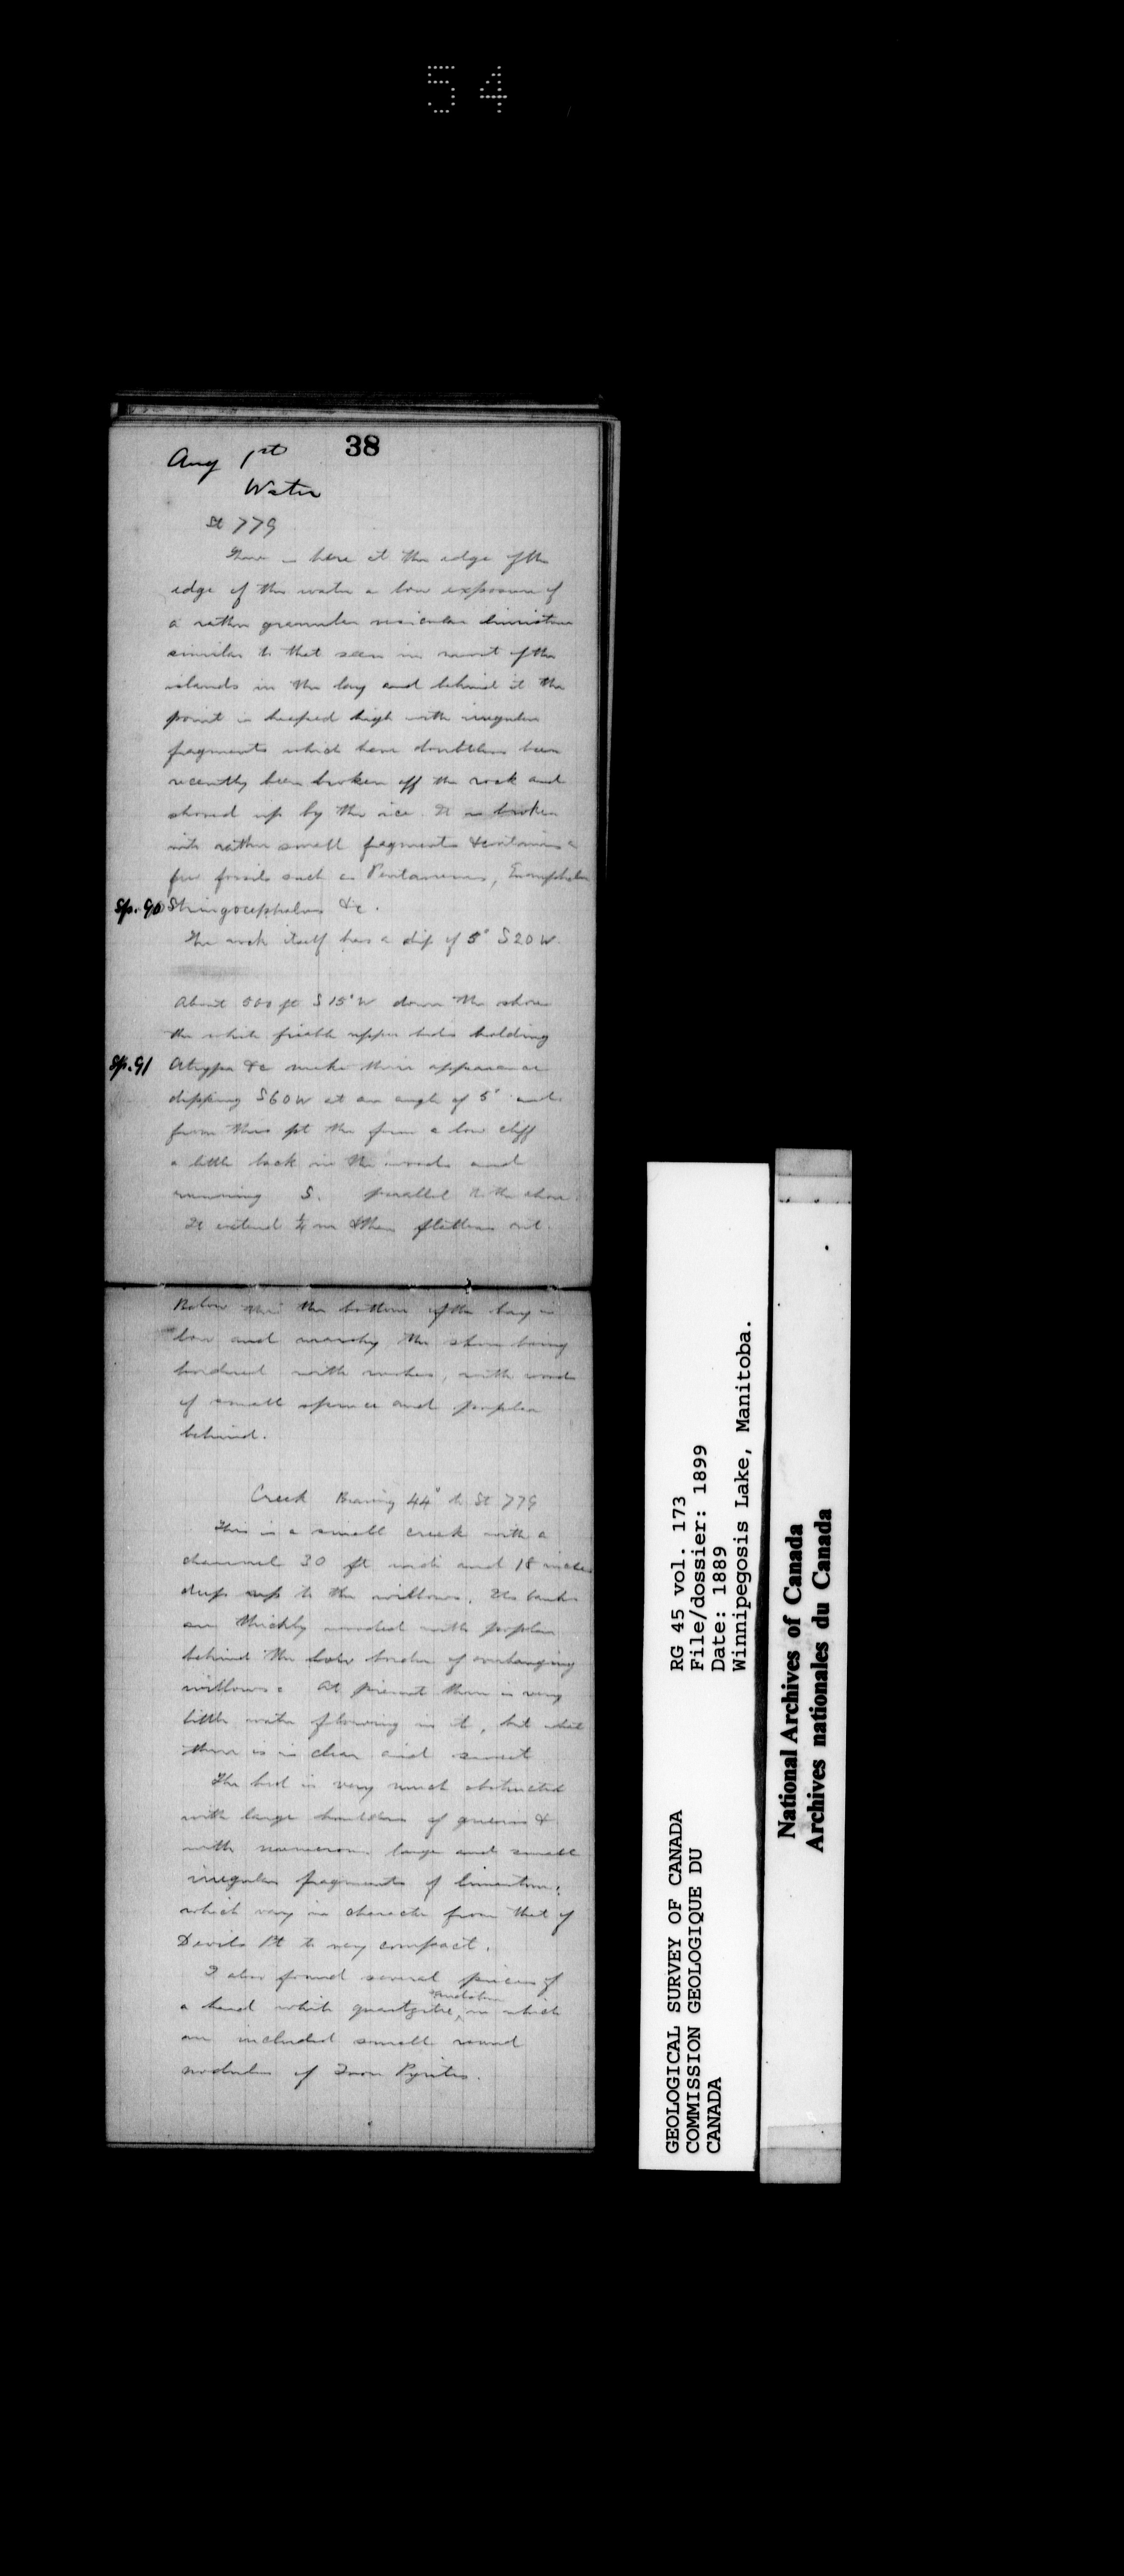 54
38
Aug 1st
Water
St 779
There is here at the edge of the
edge of the water a low exposure of
a rather granular vesicular limestone
similar to that seen in most of the
islands in the bay and behind it the
point is heaped high with irregular
fragments which have doubtless been
recently been broken off the rock and
shoved up by the ice. It is broken
into rather small fragments & contains a
few fossils such as Pentamerus, Euomphalus
Sp. 90 Stringocephalus &c.
The rock itself has a dip of 5° S20W.
About 500 ft S15°W down the shore
the white friable upper beds holding
Sp. 91 Atrypa &c make their appearance
dipping S60W at an angle of 5° and
from this pt the form a low cliff
a little back in the woods and
running S. parallel to the shore
It extend ¼ m & then flattens out.
Below this the bottom of the bay is
low and marshy the shore being
bordered with rushes, with woods
of small spruce and poplar
behind.
Creek Bearing 44° to St 779
This is a small creek with a
channel 30 ft wide and 18 inches
deep up to the willows. Its banks
are thickly wooded with poplar
behind the low border of overhanging
willows. At present there is very
little water flowing in it, but what
there is is clear and sweet
The bed is very much obstructed
with large boulders of gneiss &
with numerous large and small
irregular fragments of limestone,
which vary in character from that of
Devils Pt to very compact.
I also found several pieces of
a hard white quartzite, in which
are included small round
nodules of Iron Pyrites.
GEOLOGICAL SURVEY OF CANADA
COMMISSION GEOLOGIQUE DU
CANADA
RG 45 vol. 173
File/dossier: 1899
Date: 1889
Winnipegosis Lake, Manitoba.
National Archives of Canada
Archives nationales du Canada